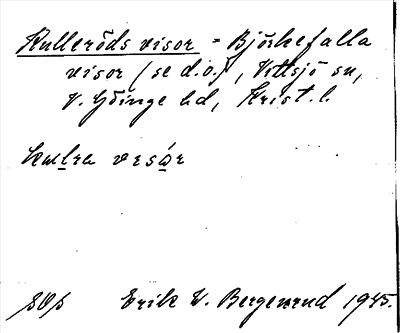 Kulleröds visor = Björkefalla
visor (se d.o.), Vittsjö sn,
V. Göinge hd, Krist. l.
Erik W. Bergenrud 1945.